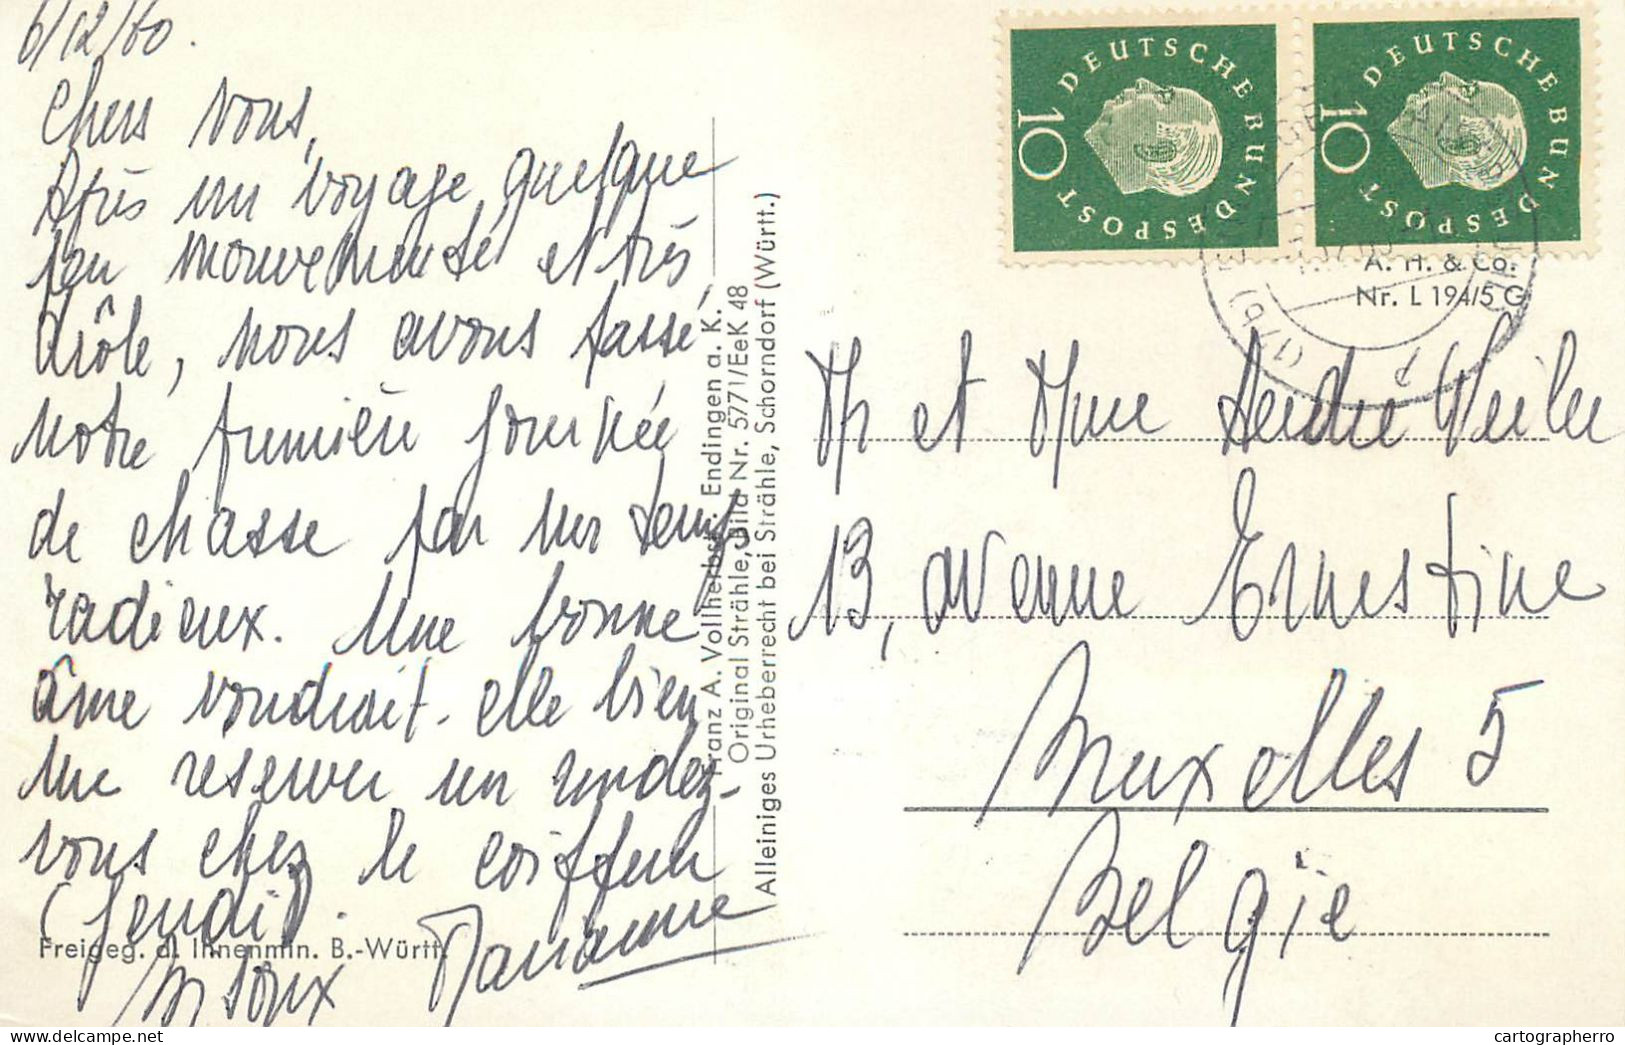 6/12/60.
Chers vous,
Après un voyage quelque
peu mouvementé et très
drôle, nous avons passé
notre première journée
de chasse par un temps
radieux. Une bonne
âme voudrait-elle bien
me réserver un rendez-
vous chez le coiffeur
(Jeudi).
Bisoux Marianne
Freigeg. d. Innenmin. B.-Württ.
Franz A. Vollherbst, Endingen a. K.
Original Strähle, Bild Nr. 5771/EeK 48
Alleiniges Urheberrecht bei Strähle, Schorndorf (Württ.)
DEUTSCHE BUNDESPOST
10
DEUTSCHE BUNDESPOST
10
A. H. & Co.
Nr. L 194/5 G
(17b)
d
Mr et Mme André Weiler
13, avenue Ernestine
Bruxelles 5
Belgie
cartographerro